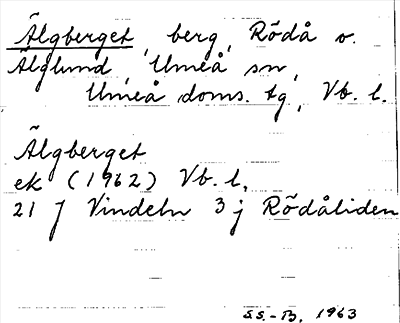 Älgberget, berg, Rödå o.
Älglund, Umeå sn,
Umeå doms. tg, Vb. l.
Älgberget
ek (1962) Vb. l,
21 J Vindeln 3 j Rödåliden
S.S.-B. 1963